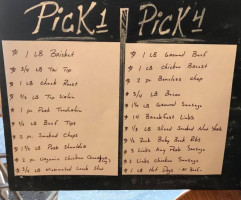 PicK 1
1 LB Brisket
3/4 LB Tri Tip
1 LB Chuck Roast
1 LB Top Sirloin
1 pc Pork Tenderloin
1/2 LB Beef Tips
2 pc Smoked Chops
1 1/2 LB Pork Shoulder
2 pc Organic Chicken
3/4 LB Marinated Steak
PicK 4
1 LB Ground Beef
1 LB Chicken Breast
2 pc Boneless Chops
3/4 LB Bacon
1 LB Ground Sausage
14 Breakfast Links
1/2 LB Sliced Smoked New York
1/2 Rack Baby Back Ribs
3 Links Any Pork Sausage
3 Links Chicken Sausage
1 LB Hot Dogs